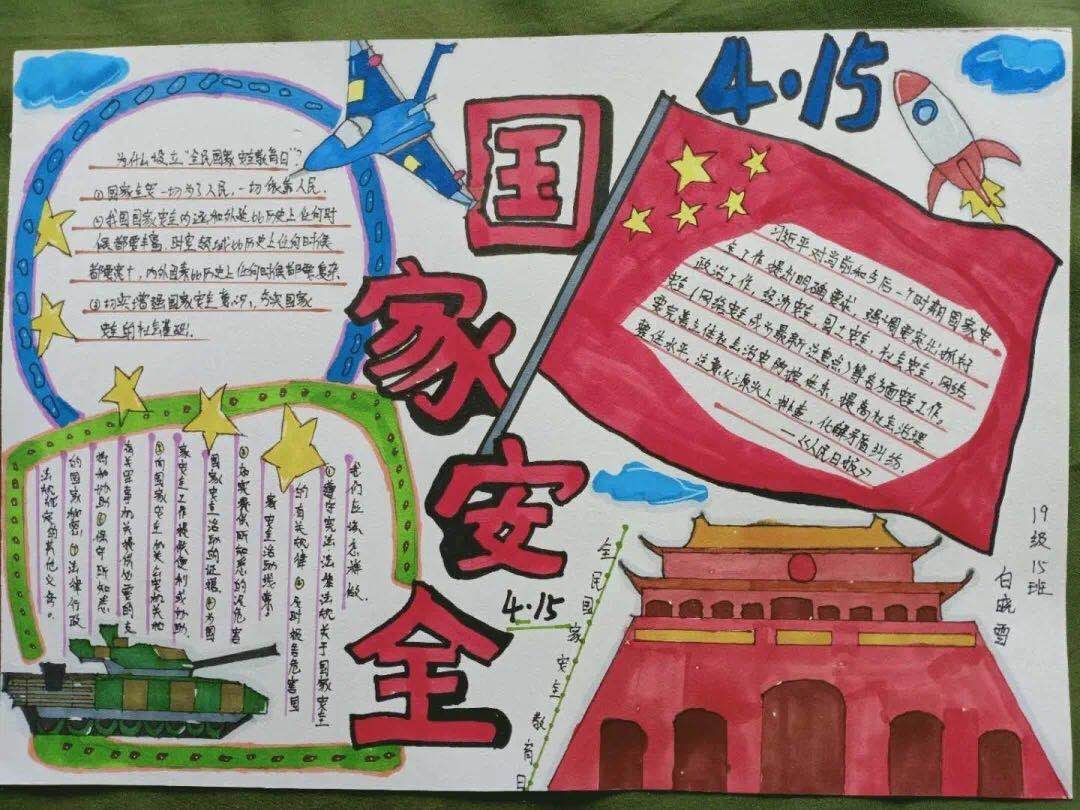 4·15
国家安全
为什么设立"全民国家安全教育日"?
①国家安全一切为了人民,一切依靠人民.
②我国国家安全内涵和外延比历史上任何时
候都要丰富,时空领域比历史上任何时候
都要宽广,内外因素比历史上任何时候都要复杂.
③切实增强国家安全意识,夯实国家
安全的社会基础.
习近平对当前和今后一个时期国家安
全工作提出明确要求,强调要突出抓好
政治工作、经济安全、国土安全、社会安全、网络
安全(网络安全成为最新注意点)等各方面安全工作。
要完善立体社会治安防控体系,提高社会治理
整体水平,注意从源头上排查,化解矛盾纠纷.
——《人民日报》
我们应该怎样做.
①遵守宪法法律法规关于国家安全
的有关规律②及时报告危害国
家安全活动线索
③如实提供所知悉的危害
国家安全活动的证据④为国
家安全工作提供便利或协助
⑤向国家安全机关公安机关和
有关军事机关提供必要的支
持和协助⑥保守所知悉
的国家秘密⑦法律行政
法规规定的其他义务。
4·15
全民国家安全教育日
19级15班
白晓雪